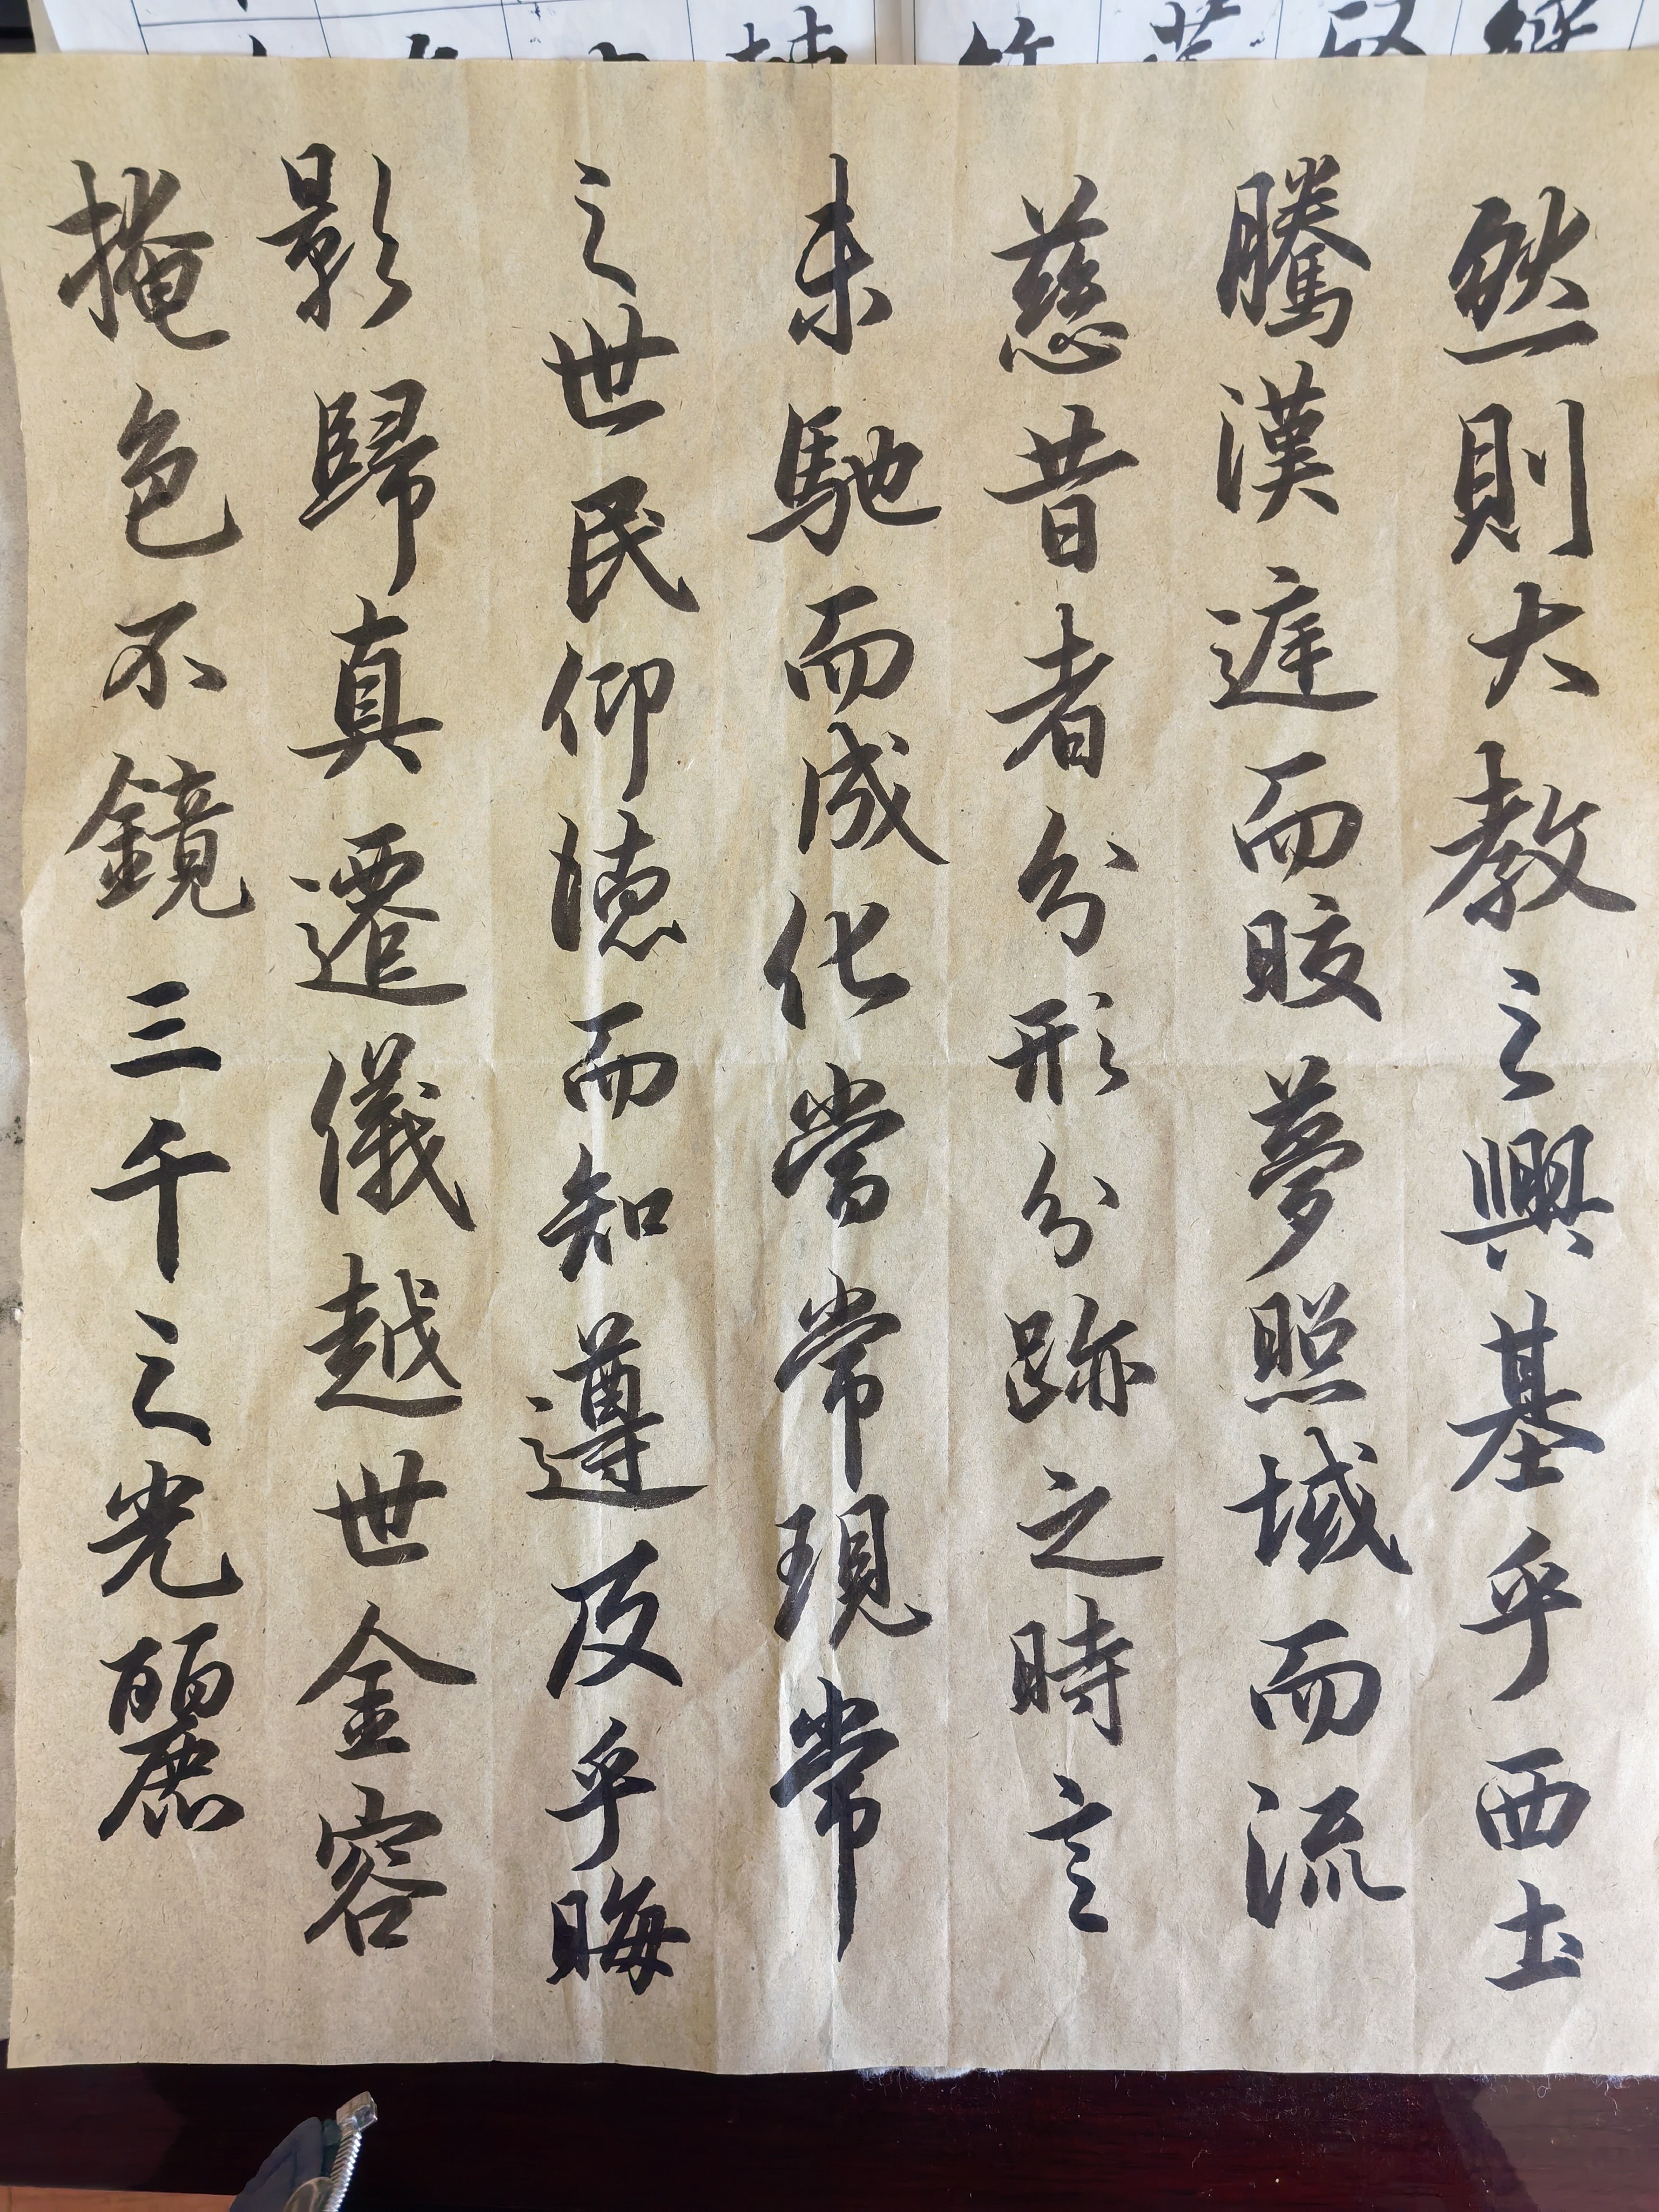 然則大教之興基乎西土
騰漢庭而皎夢照域而流
慈昔者分形分跡之時言
未馳而成化當常現常
之世民仰德而知遵及乎晦
影歸真遷儀越世金容
掩色不鏡三千之光麗